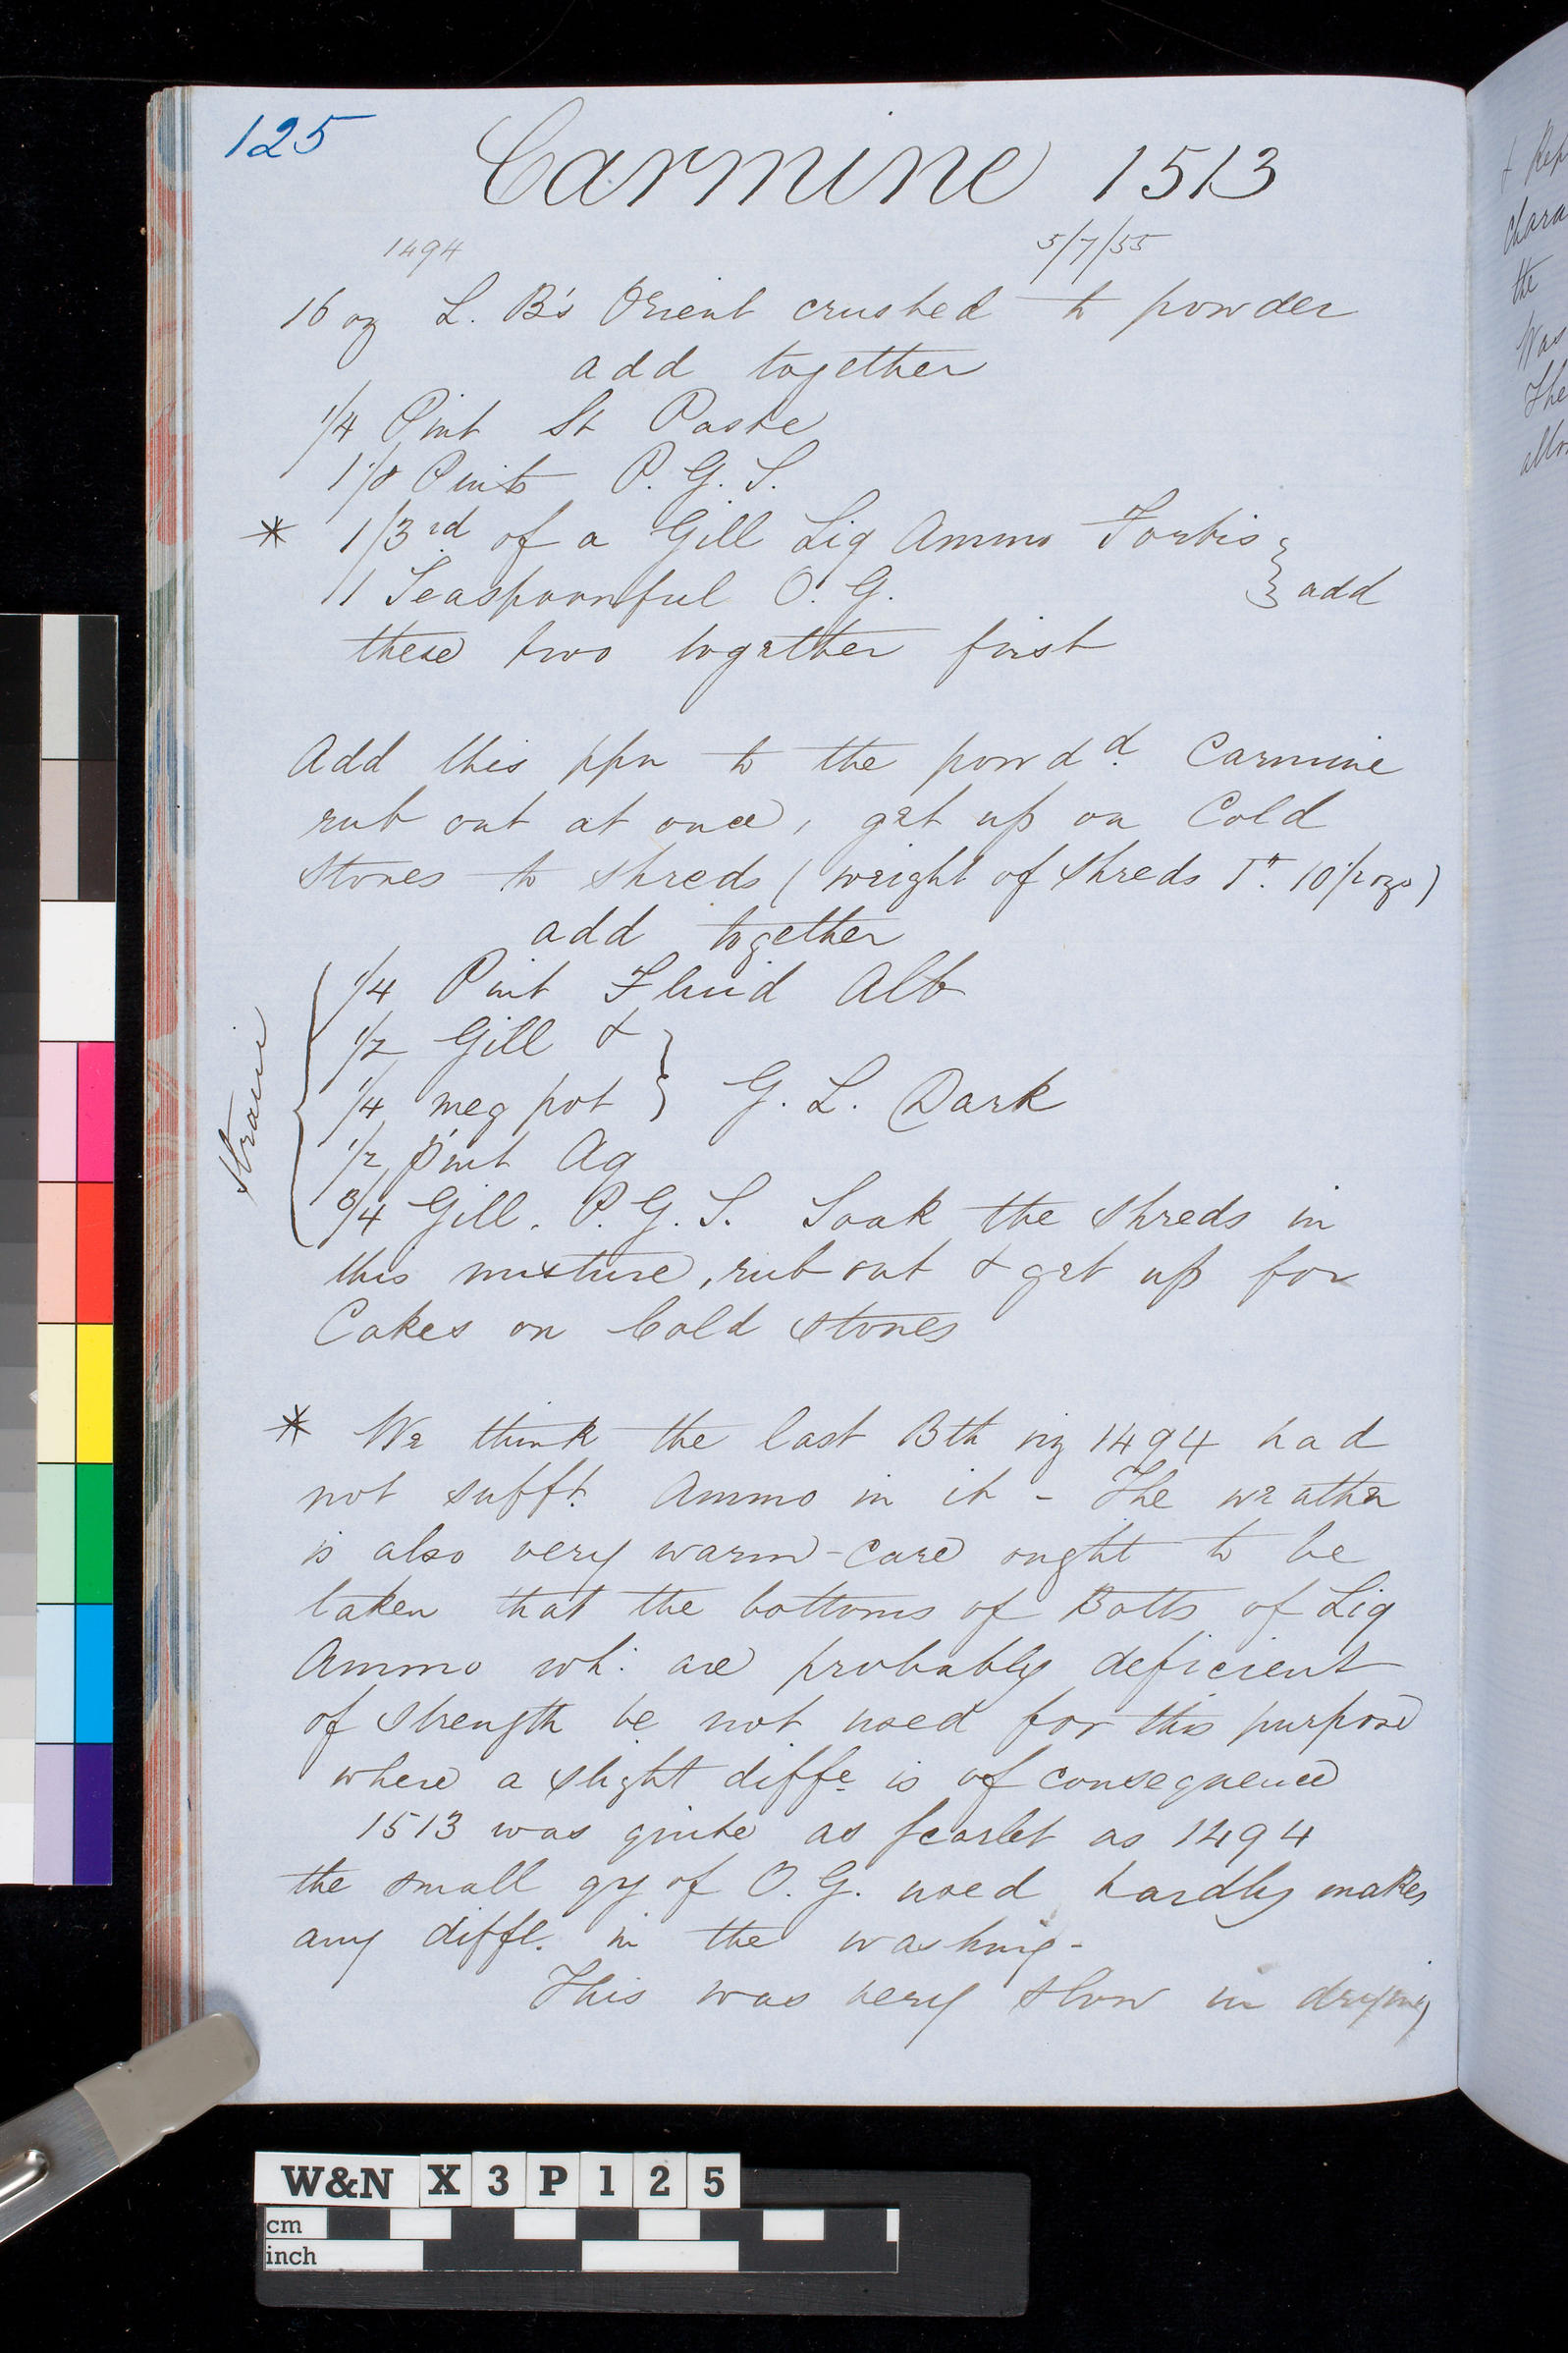 125
Carmine 1513
1494 5/7/55
16 oz L. B's Orient crushed to powder
add together
1/4 Pint St Paste
1 1/8 Pints P. G. S.
* 1/3rd of a Gill Liq Ammo Fortis
1 Teaspoonful O. G. } add
these two together first
Add this ppn to the powdd. Carmine
rub out at once, get up on Cold
Stones to shreds (weight of shreds 1lb. 10 1/2 ozs)
add together
Strain
1/4 Pint Fluid Alb
1/2 Gill &
1/4 meg pot } G. L. Dark
1/2 pint Aq
3/4 Gill. P. G. S. Soak the shreds in
this mixture, rub out & get up for
Cakes on Cold stones
* We think the last Bth viz 1494 had
not sufft. Ammo in it - The weather
is also very warm - care ought to be
taken that the bottoms of Botts of Liq
Ammo wh. are probably deficient
of strength be not used for this purpose
where a slight diffe is of consequence
1513 was quite as scarlet as 1494
the small qy of O. G. used hardly makes
any diffe. in the washing -
This was very slow in drying
+ Rep
chara
the
Was
The
W&N X 3 P 1 2 5
cm
inch